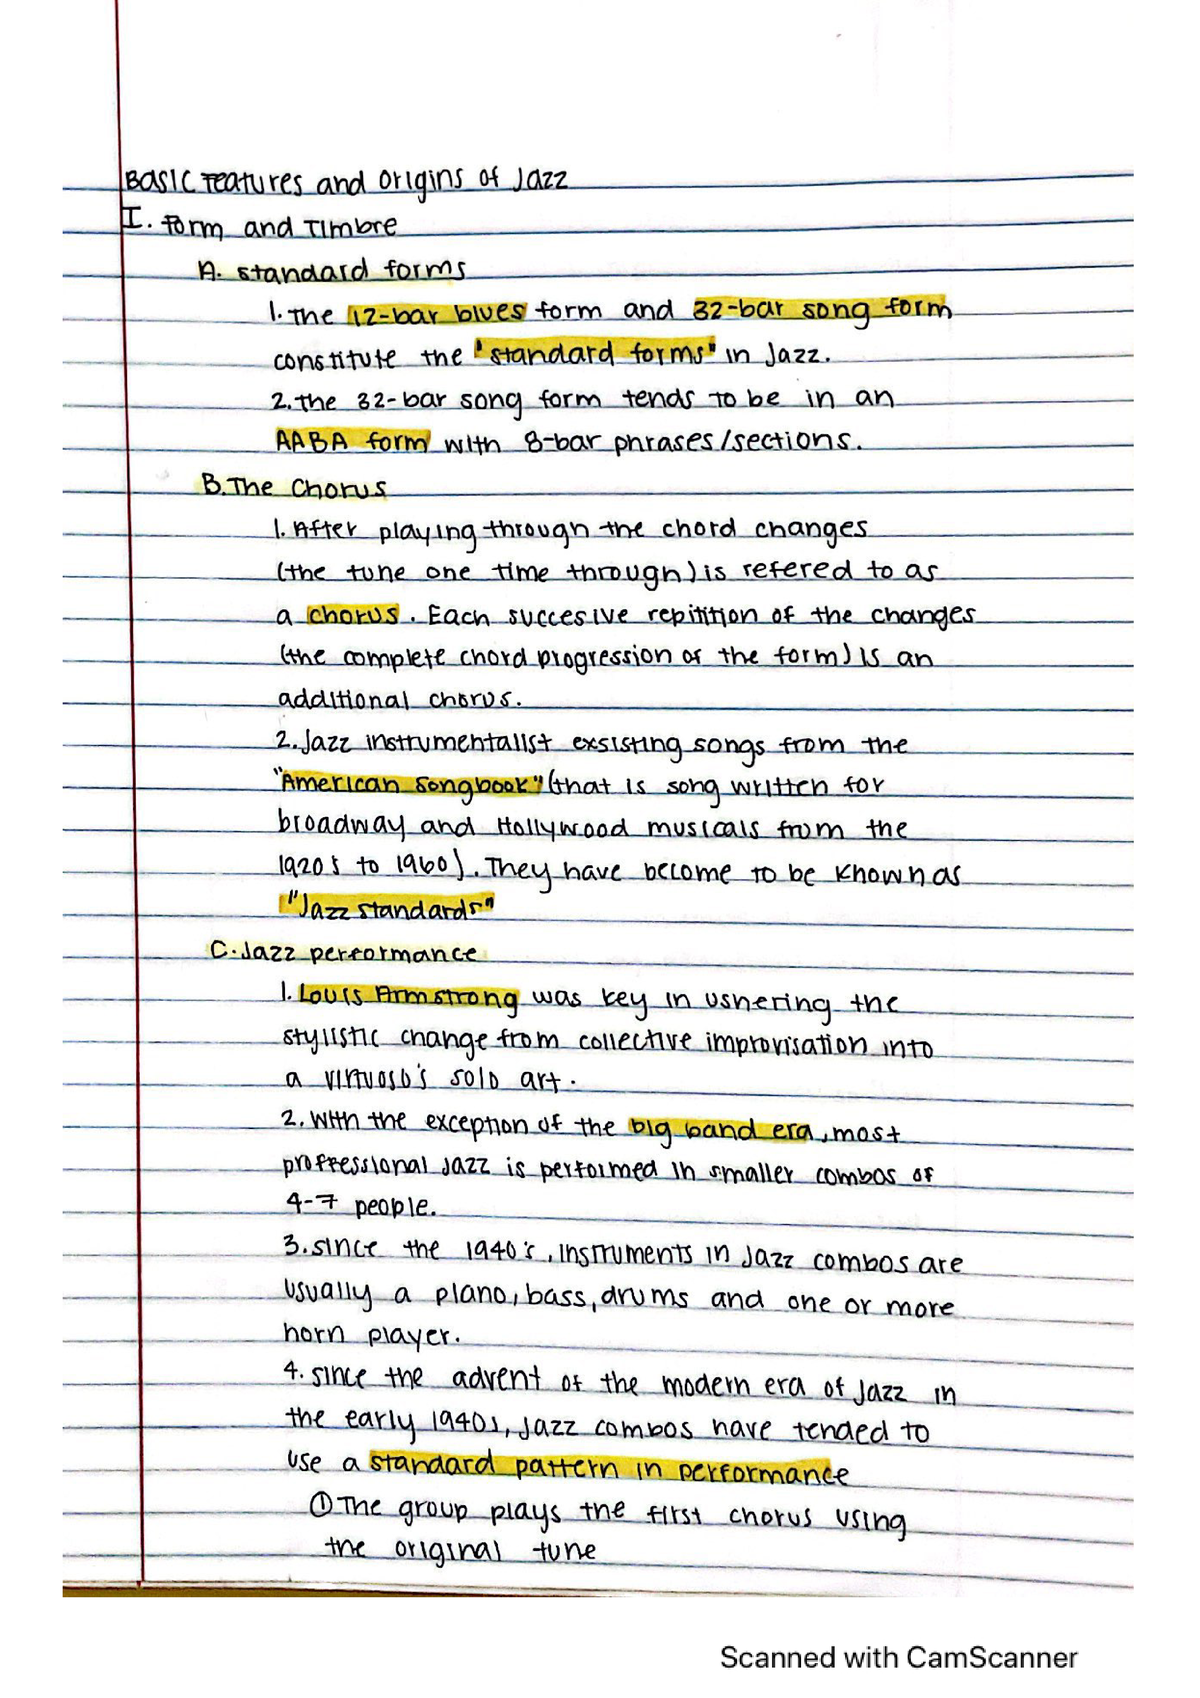 Basic Features and Origins of Jazz
I. Form and Timbre
A. Standard forms
1. The 12-bar blues form and 32-bar song form
constitute the "standard forms" in Jazz.
2. The 32-bar song form tends to be in an
AABA form with 8-bar phrases/sections.
B. The Chorus
1. After playing through the chord changes
(the tune one time through) is refered to as
a chorus. Each succesive repitition of the changes
(the complete chord progression of the form) is an
additional chorus.
2. Jazz instrumentalist exsisting songs from the
"American Songbook" (that is song written for
broadway and Hollywood musicals from the
1920s to 1960). They have become to be known as
"Jazz standards"
C. Jazz performance
1. Louis Armstrong was key in ushering the
stylistic change from collective improvisation into
a virtuoso's solo art.
2. With the exception of the big band era, most
proffessional Jazz is performed in smaller combos of
4-7 people.
3. Since the 1940's, instruments in Jazz combos are
usually a piano, bass, drums and one or more
horn player.
4. Since the advent of the modern era of Jazz in
the early 1940s, Jazz combos have tended to
use a standard pattern in performance
① The group plays the first chorus using
the original tune
Scanned with CamScanner